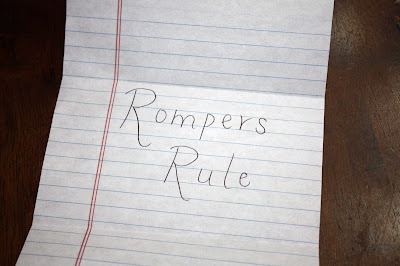 Rompers
Rule